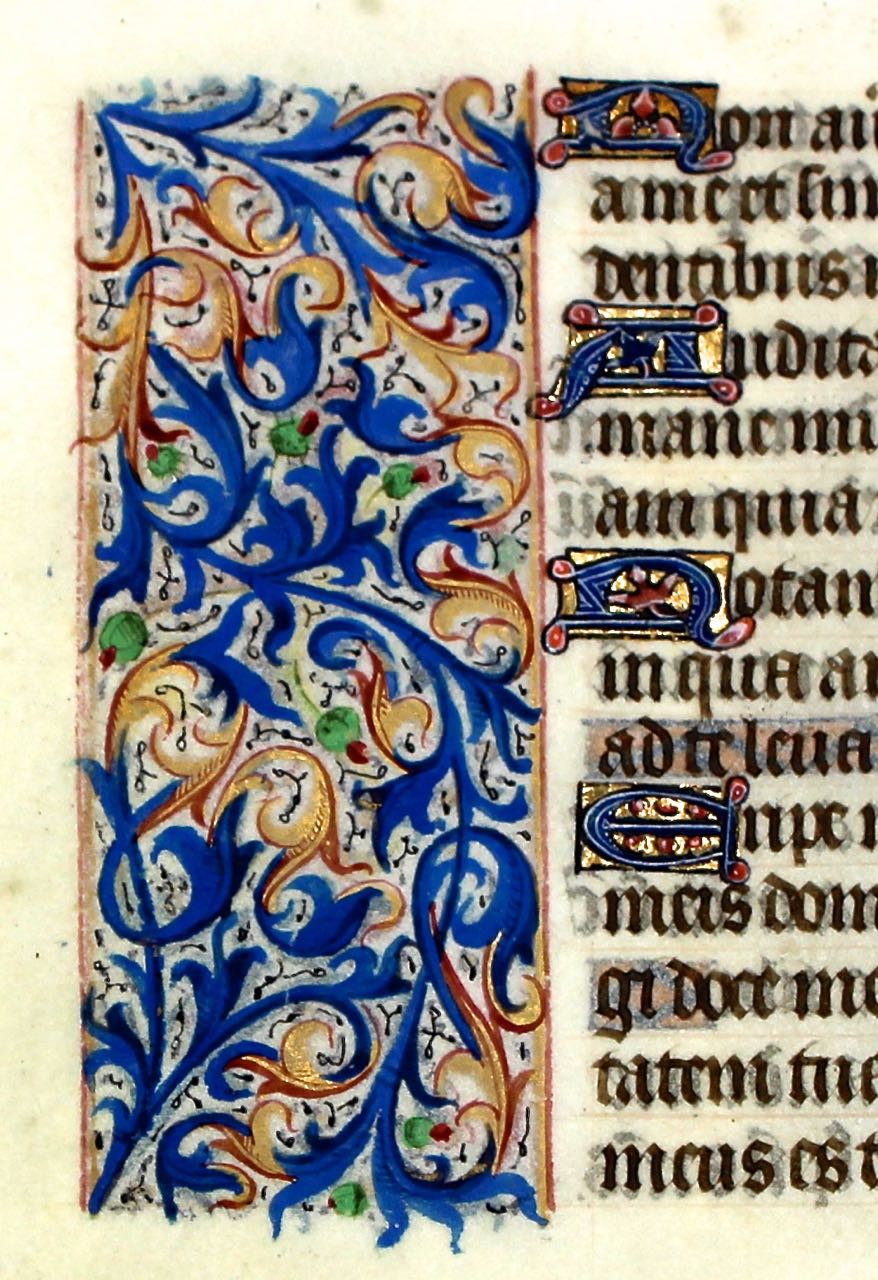 Non au
a me et sim
dentibus i
Audita
mane mi
am quia
Notam
in qua am
ad te leua
Eripe m
meis dom
gi doce me
tatem tua
meus es t